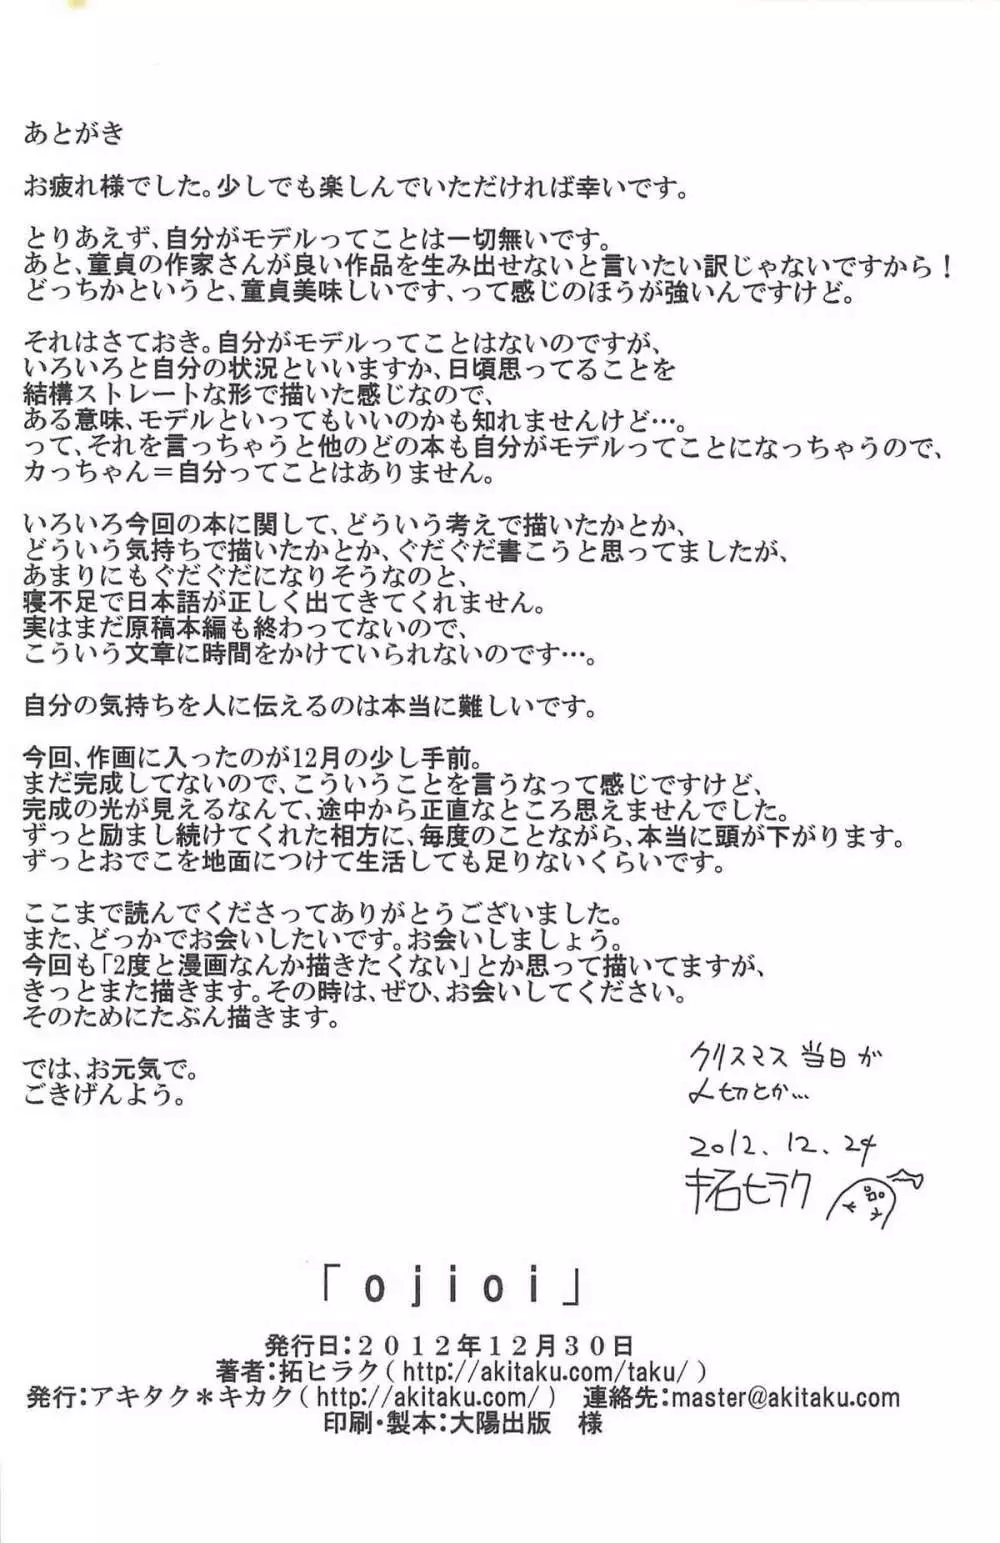 あとがき
お疲れ様でした。少しでも楽しんでいただければ幸いです。
とりあえず、自分がモデルってことは一切無いです。
あと、童貞の作家さんが良い作品を生み出せないと言いたい訳じゃないですから！
どっちかというと、童貞美味しいです、って感じのほうが強いんですけど。
それはさておき。自分がモデルってことはないのですが、
いろいろと自分の状況といいますか、日頃思ってることを
結構ストレートな形で描いた感じなので、
ある意味、モデルといってもいいのかも知れませんけど…。
って、それを言っちゃうと他のどの本も自分がモデルってことになっちゃうので、
カっちゃん＝自分ってことはありません。
いろいろ今回の本に関して、どういう考えで描いたかとか、
どういう気持ちで描いたかとか、ぐだぐだ書こうと思ってましたが、
あまりにもぐだぐだになりそうなのと、
寝不足で日本語が正しく出てきてくれません。
実はまだ原稿本編も終わってないので、
こういう文章に時間をかけていられないのです…。
自分の気持ちを人に伝えるのは本当に難しいです。
今回、作画に入ったのが12月の少し手前。
まだ完成してないので、こういうことを言うなって感じですけど、
完成の光が見えるなんて、途中から正直なところ思えませんでした。
ずっと励まし続けてくれた相方に、毎度のことながら、本当に頭が下がります。
ずっとおでこを地面につけて生活しても足りないくらいです。
ここまで読んでくださってありがとうございました。
また、どっかでお会いしたいです。お会いしましょう。
今回も「2度と漫画なんか描きたくない」とか思って描いてますが、
きっとまた描きます。その時は、ぜひ、お会いしてください。
そのためにたぶん描きます。
では、お元気で。
ごきげんよう。
クリスマス当日が
〆切とか…
2012.12.24
拓ヒラク
「ojioi」
発行日：２０１２年１２月３０日
著者：拓ヒラク（http://akitaku.com/taku/）
発行：アキタク＊キカク（http://akitaku.com/）　連絡先：master@akitaku.com
印刷・製本：大陽出版　様